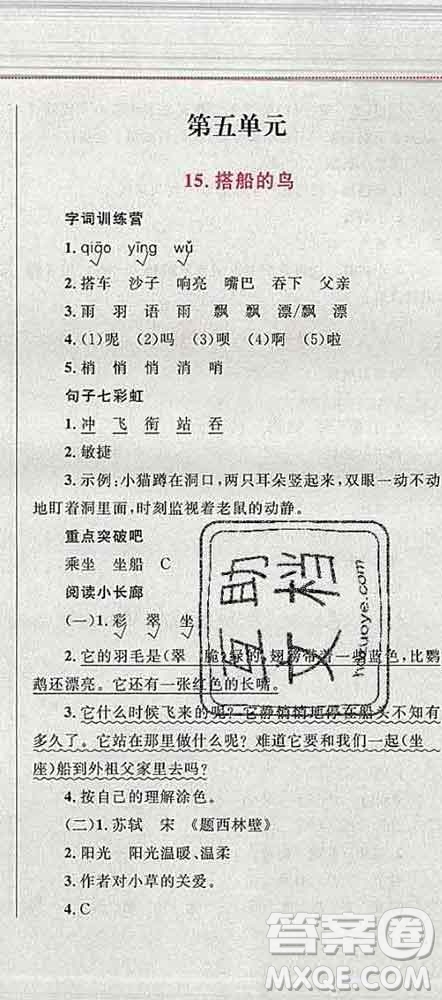 第五单元
15.搭船的鸟
字词训练营
1.qiāo yīng wǔ
2.搭车 沙子 响亮 嘴巴 吞下 父亲
3.雨 羽 语 雨 飘 飘 漂/飘 漂
4.(1)呢 (2)吗 (3)呗 (4)啊 (5)啦
5.梢 悄 悄 消 哨
句子七彩虹
1.冲 飞 衔 站 吞
2.敏捷
3.示例:小猫蹲在洞口,两只耳朵竖起来,双眼一动不动
地盯着洞里面,时刻监视着老鼠的动静。
重点突破吧
乘坐 坐船 C
阅读小长廊
(一)1.彩 翠 坐
2.它的羽毛是(翠 脆)绿的,翅膀带着一些蓝色,比鹦
鹉还漂亮。它还有一张红色的长嘴。
3.它什么时候飞来的呢?它静悄悄地停在船头不知有
多久了。它站在那里做什么呢?难道它要和我们一起(坐
座)船到外祖父家里去吗?
4.按自己的理解涂色。
(二)1.苏轼 宋 《题西林壁》
2.阳光 阳光温暖、温柔
3.作者对小草的关爱。
4.C
互助文档
hzkuoye.com
答案圈
MXQE.COM